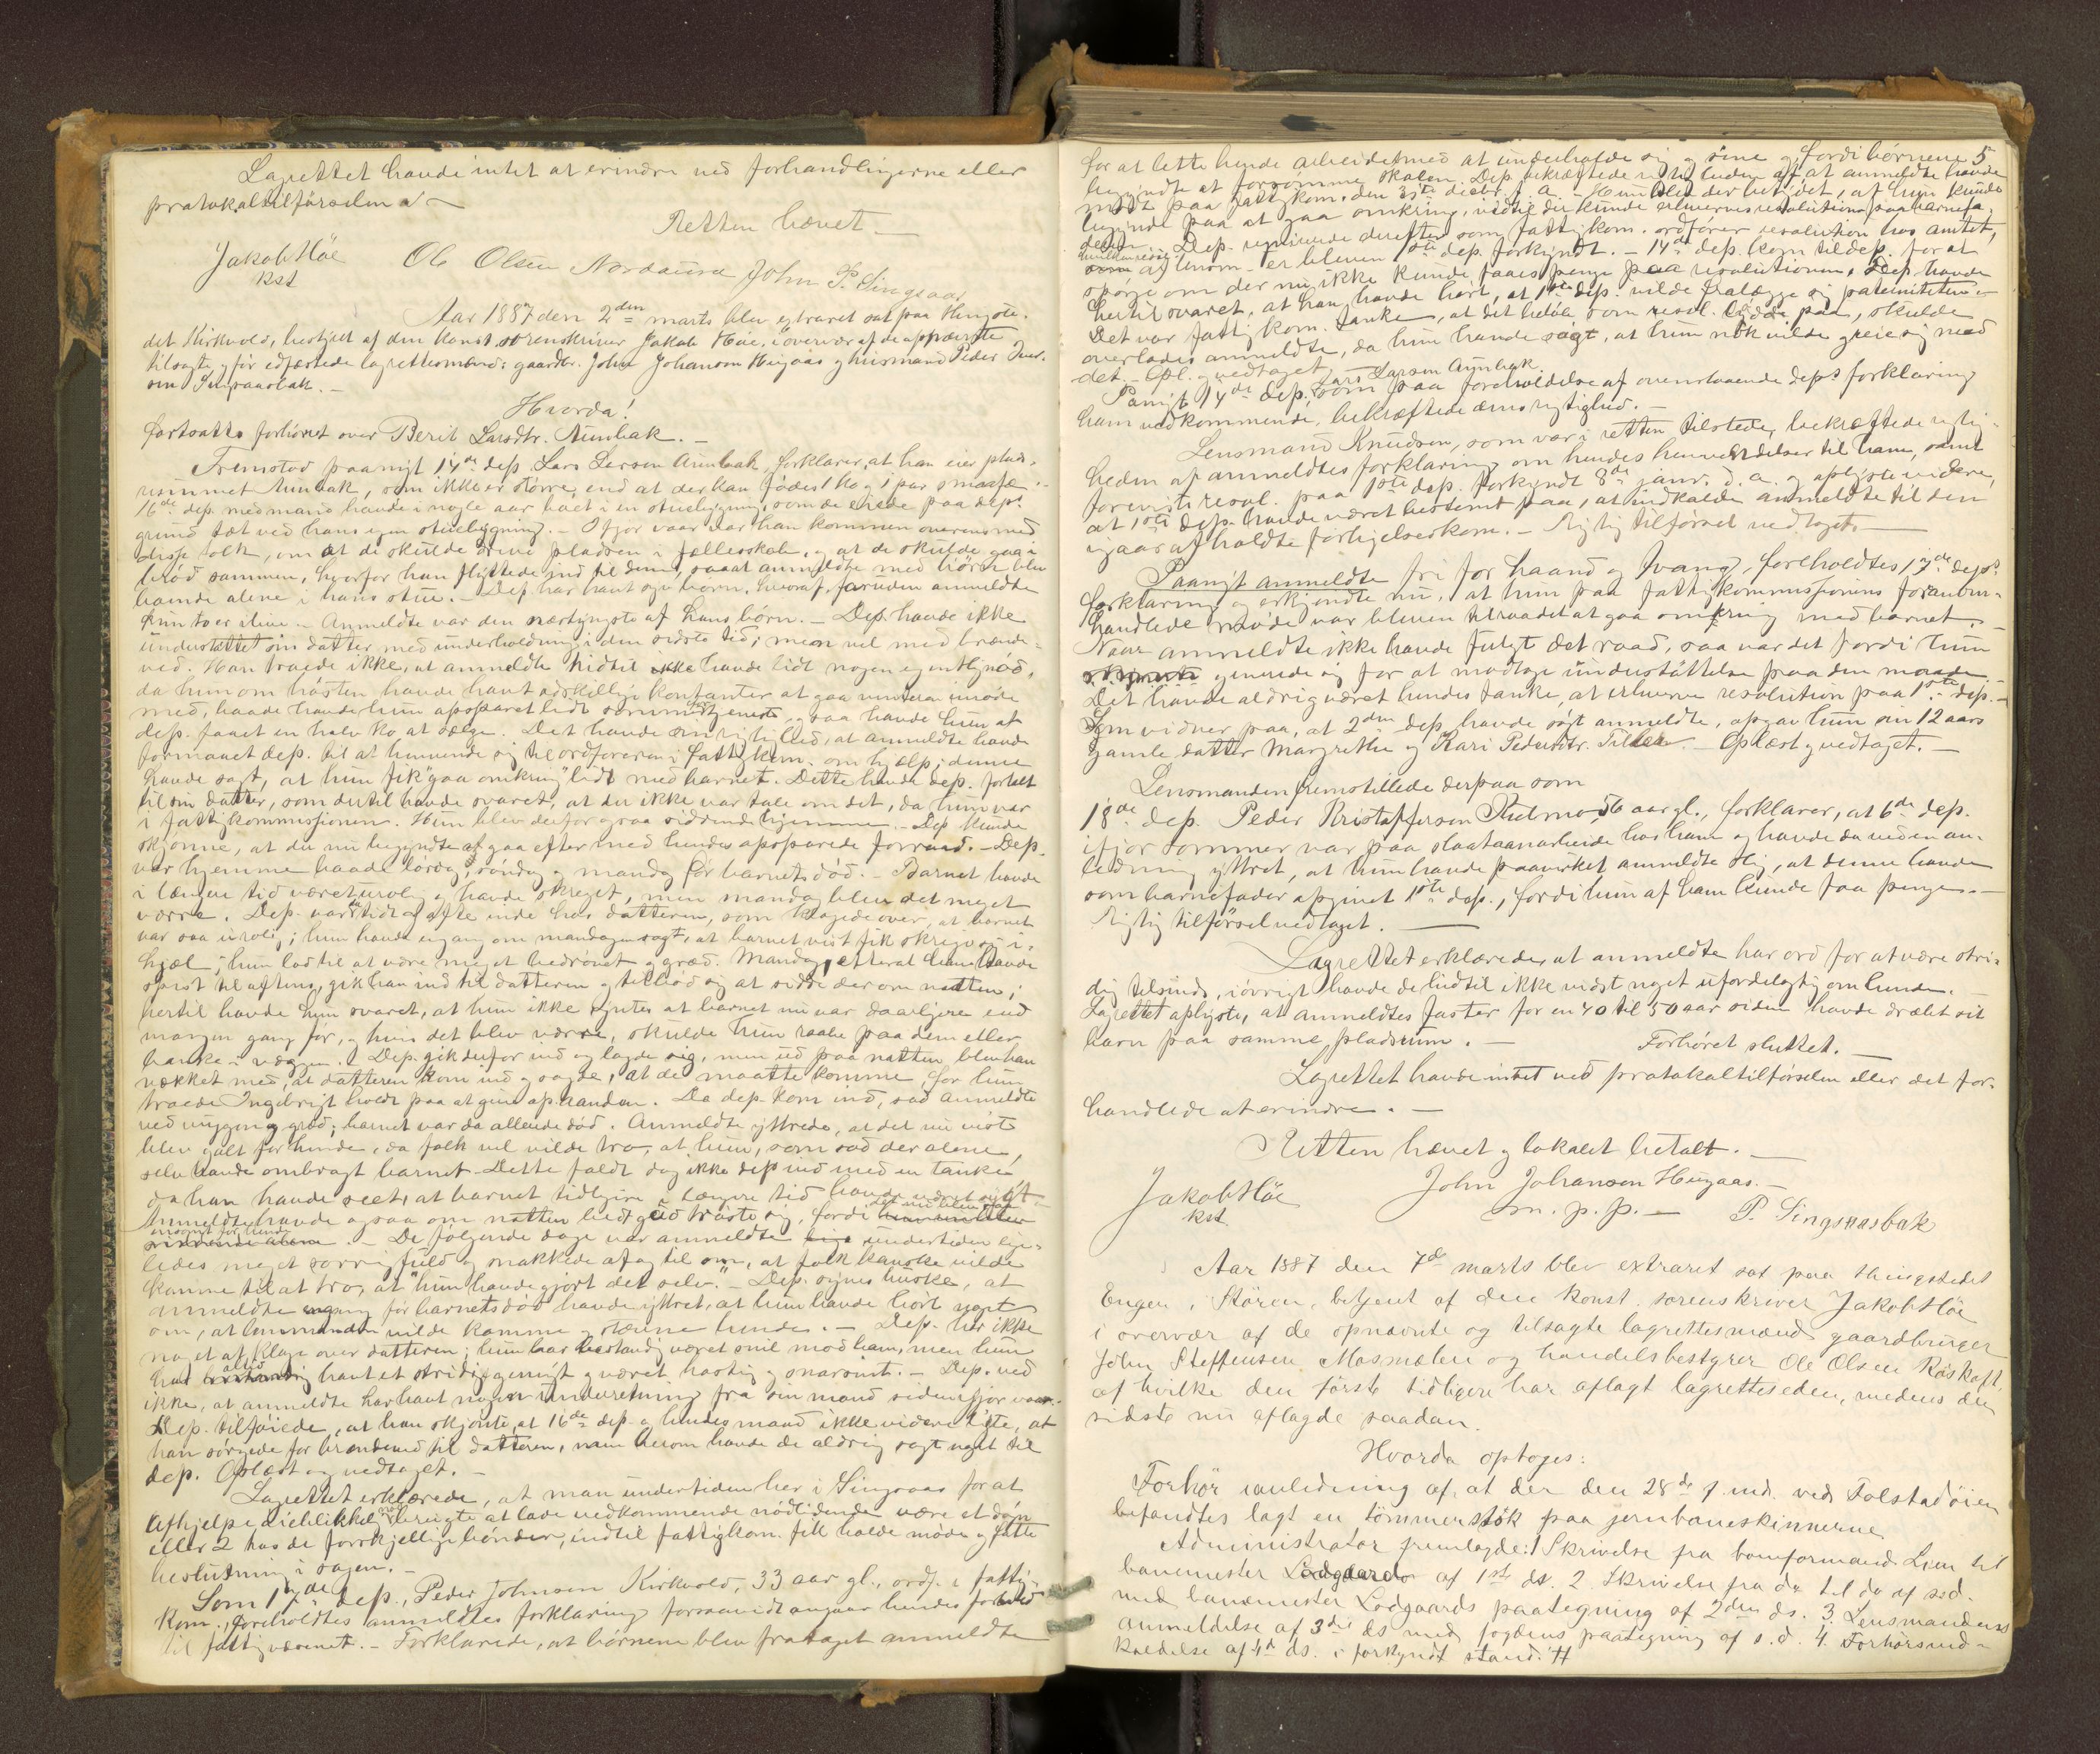 Lagrettet havde intet at erindre ved forhandlingerne eller
protokoltilførselen.
Retten hævet
Jakob Høe
kst
Ole Olsen Nordaune John P. Singsaas
Aar 1887 den 2den marts blev extraret sat paa thingste-
det Kirkvold, bestyret af den konst. sorenskriver Jakob Høe, i overvær af de opnævnte
tilsagte og før edfæstede lagrettesmænd: gaardbr. John Johansen Haugaas og husmand Peder Iver-
sen Singsaasbak.
Hvorda!
fortsattes forhøret over Berit Larsdtr. Aunbak.
Fremstod paanyt 14de dep. Lars Larsen Aunbak, forklarer, at han eier plads-
rummet Aunbak, som ikke er større, end at der kan fødes 1 ko og 1 par smaafæ.
16de dep. med mand havde i nogle aar boet i en stuebygning, som de eiede paa dep.s
grund tæt ved hans egen stuebygning. - Ifjor vaar var han kommen overens med
disse folk, om at de skulde drive pladsen i fællesskab, og at de skulde gaa i
brød sammen, hvorfor han flyttede ind til dem, saaat anmeldte med børn blev
boende alene i hans stue. - Dep. har havt syv børn, hvoraf foruden anmeldte
kun to er ilive. - Anmeldte var den næstyngste af hans børn. - Dep. havde ikke
understøttet sin datter med underholdning i den sidste tid, men vel med brænde-
ved. Han troede ikke, at anmeldte hidtil havde lidt nogen egentlig nød,
da hun om høsten havde havt adskillige kontanter at gaa vinteren imøde
med, baade havde hun opsparet lidt sommerfortjeneste, og saa havde hun af
dep. faaet en halv ko at sælge. Det havde sin rigtighed, at anmeldte havde
formaaet dep. til at henvende sig til ordføreren i fattigkom. om hjælp; denne
havde sagt, at hun fik "gaa omkring" lidt med barnet. Dette havde dep. fortalt
til sin datter, som dertil havde svaret, at der ikke var tale om det, da hun var
i fattigkommissionen. Hun blev derfor ogsaa siddende hjemme. - Dep. kunde
skjønne, at du nu begyndte at gaa efter med hendes opsparede forraad. - Dep.
var hjemme baade lørdag, søndag og mandag før barnets død. - Barnet havde
i længere tid været uroligt og havde skreget, men mandag blev det meget
værre. Dep. var tidt og ofte inde hos datteren, som klagede over, at barnet
var saa uroligt; hun havde engang om mandagen sagt, at barnet vist fik skrige sig i-
hjel; hun lod til at være meget bedrøvet og græd. Mandag, efterat han havde
spist til aftens, gik han ind til datteren og tilbød sig at sidde der om natten;
hertil havde hun svaret, at hun ikke syntes at barnet nu var daarligere end
mangen gang før, og hvis det blev værre, skulde hun raabe paa dem eller
banke i væggen. Dep. gik derfor ind og lagde sig, men ud paa natten blev han
vækket med, at datteren kom ind og sagde, at de maatte komme, for hun
troede Ingebrigt holdt paa at give op aanden. Da dep. kom ind, sad anmeldte
ved vuggen og græd; barnet var da allerede død. Anmeldte yttrede, at det nu vist
blev galt for hende, da folk vel vilde tro, at hun, som sad der alene,
selv havde ombragt barnet. Dette faldt dog ikke dep. ind med en tanke
da han havde seet, at barnet tidligere i længere tid havde været sygt.
Anmeldte havde ogsaa om natten bedt gud trøste sig, fordi det nu blev saa
ensomt for hende. - De følgende dage var anmeldte undertiden lige-
ledes meget sorrigfuld og snakkede af og til om, at folk kanske vilde
komme til at tro, at "hun havde gjort det selv." - Dep. synes huske, at
anmeldte engang før barnets død havde yttret, at hun havde hørt noget
om, at lensmanden vilde komme og stevne hende. - Dep. har ikke
noget at klage over datteren; hun har bestandig været snil mod ham, men hun
har altid havt et stridigt gemyt og været hastig og snarsint. - Dep. ved
ikke, at anmeldte har havt nogen underretning fra sin mand siden ifjor vaar.
Dep. tilføiede, at han skjønte, at 16de dep. og hendes mand ikke videre ligte, at
han sørgede for brændeved til datteren, men herom havde de aldrig sagt noget til
dep. Oplæst og vedtaget.
Lagrettet erklærede, at man undertiden her i Singsaas for at
afhjelpe øieblikkelig nød brugte at lade vedkommende nødlidende være et døgn
eller 2 hos de forskjellige bønder, indtil fattigkom. fik holde møde og fatte
beslutning i sagen.
Som 17de dep., Peder Johnsen Kirkvold, 33 aar gl., ordf. i fattig-
kom., foreholdtes anmeldtes forklaring forsaavidt angaar hendes forhold
til fattigvæsenet. - Forklarede, at børnene blev frataget anmeldte
5
for at lette hende arbeidet med at underholde sig og sine og fordi børnene
begyndte at forsømme skolen. Dep. bekræftede rigtigheden af, at anmeldte havde
mødt paa fattigkom. den 31te decbr. f. a. - Hun blev der betydet, at hun kunde
begynde paa at gaa omkring, indtil der kunde erhverves resolution paa barnefa-
deren. Dep. requirerede derefter som fattigkom. ordfører resolution hos amtet,
hvilken resol. er bleven 1ste dep. forkyndt. - 14de dep. kom til dep. for at
spørge om der nu ikke kunde faaes penge paa resolutionen. Dep. havde
hertil svaret, at han havde hørt, at 1ste dep. vilde fralægge sig paterniteten. -
Det var fattigkom. tanke, at det beløb som resol. lydde paa, skulde
overlades anmeldte, da hun havde sagt, at hun nok vilde greie sig med
det. - Opl. og vedtaget.
Paanyt 14de dep., Lars Larsen Aunbak, som paa foreholdelse af ovenstaaende dep.s forklaring
ham vedkommende, bekræftede dens rigtighed.
Lensmand Knudsen, som var i retten tilstede, bekræftede rigtig-
heden af anmeldtes forklaring om hendes henvendelser til ham, samt
foreviste resol. paa 1ste dep. forkyndt 8de janr. d. a. og oplyste videre,
at 1ste dep. havde været bestemt paa, at indkalde anmeldte til den
igaar afholdte forligelseskom. - Rigtig tilførsel vedtoges.
Paanyt anmeldte fri for baand og tvang, foreholdtes 17de dep.s
forklaring og erkjendte nu, at hun paa fattigkommissionens foranom-
handlede møde var bleven tilraadet at gaa omkring med barnet.
Naar anmeldte ikke havde fulgt det raad, saa var det fordi hun
generede sig for at modtage understøttelse paa den maade.
Det havde aldrig været hendes tanke, at erhverve resolution paa 1ste dep. -
Som vidner paa, at 2den dep. havde søgt anmeldte, opgav hun sin 12 aars
gamle datter Margrethe og Kari Pedersdtr. Tiller. - Oplæst og vedtaget.
Lensmanden fremstillede derpaa som
18de dep. Peder Kristoffersen Rudmo, 56 aar gl., forklarer, at 6te dep.
ifjor sommer var paa slaataanarbeide hos ham og havde da ved en an-
ledning yttret, at hun havde paavirket anmeldte slig, at denne havde
som barnefader opgivet 1ste dep., fordi hun af ham kunde faa penge.
Rigtig tilførsel vedtaget.
Lagrettet erklærede, at anmeldte har ord for at være stri-
dig tilsinds, iøvrigt havde de hidtil ikke vidst noget ufordelagtig om hende.
Lagrettet oplyste, at anmeldtes faster for en 40 til 50 aar siden havde dræbt sit
barn paa samme pladsrum.
Forhøret sluttet.
Lagrettet havde intet ved protokoltilførselen eller det for-
handlede at erindre.
Retten hævet og lokalet betalt.
Jakob Høe
kst
John Johansen Haugaas.
m. p. p.
P. Singsaasbak
Aar 1887 den 7de marts blev extraret sat paa thingstedet
Engen, Støren, betjent af den konst. sorenskriver Jakob Høe
i overvær af de opnævnte og tilsagte lagrettesmænd gaardbruger
John Steffensen Mosmælen og handelsbestyrer Ole Olsen Røskaft,
af hvilke den første tidligere har aflagt lagretteseden, medens den
sidste nu aflagde saadan.
Hvorda optoges:
Forhør i anledning af, at der den 28de f. md. ved Folstadøien
befandtes lagt en tømmerstok paa jernbaneskinnerne.
Administrator fremlagde: 1 Skrivelse fra banformand Lien til
banemester Lodgaard af 1ste ds. 2. Skrivelse fra do til do af s.d.
med banemester Lodgaards paategning af 2den ds. 3. Lensmandens
anmeldelse af 3die ds med fogdens paategning af s.d. 4. Forhørsind-
kaldelse af 4de ds. i forkyndt stand. #